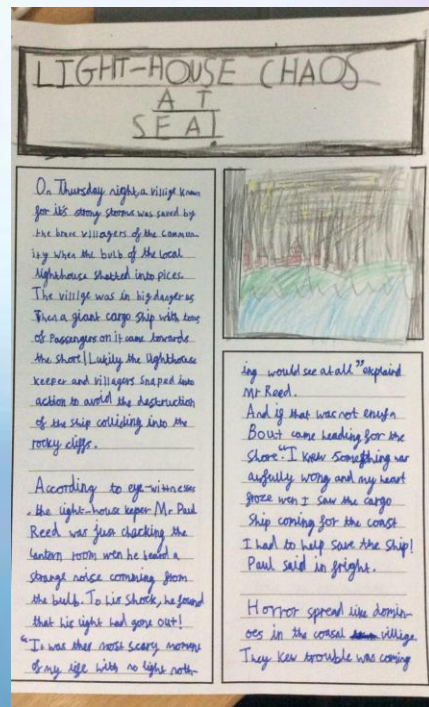 LIGHT-HOUSE CHAOS
AT
SEA!
On Thursday night, a villige known
for it's strong storms was saved by
the brave villagers of the commun-
ity when the bulb of the local
lighthouse shatted into pices.
The villige was in big danger as
then a giant cargo ship with tons
of Passengers on it came towards
the shore! Lukily the lighthouse
keeper and villagers snaped into
action to avoid the destruction
of the ship colliding into the
rocky cliffs.
According to eye-wittnesses
, the light-house keper Mr Paul
Reed was just chacking the
lantern room wen he heard a
strange noise comming from
the bulb. To his shock, he found
that his light had gone out!
"It was ther most scary moment
of my life with no light noth-
ing would see at all" explaind
Mr Reed.
And if that was not enufn
Bout came heading for the
shore. "I knew something was
awfully wong and my heart
froze wen I saw the cargo
ship coming for the coast
I had to help save the ship!
Paul said in fright.
Horror spread like domin-
oes in the coasal villige.
They kew trouble was coming